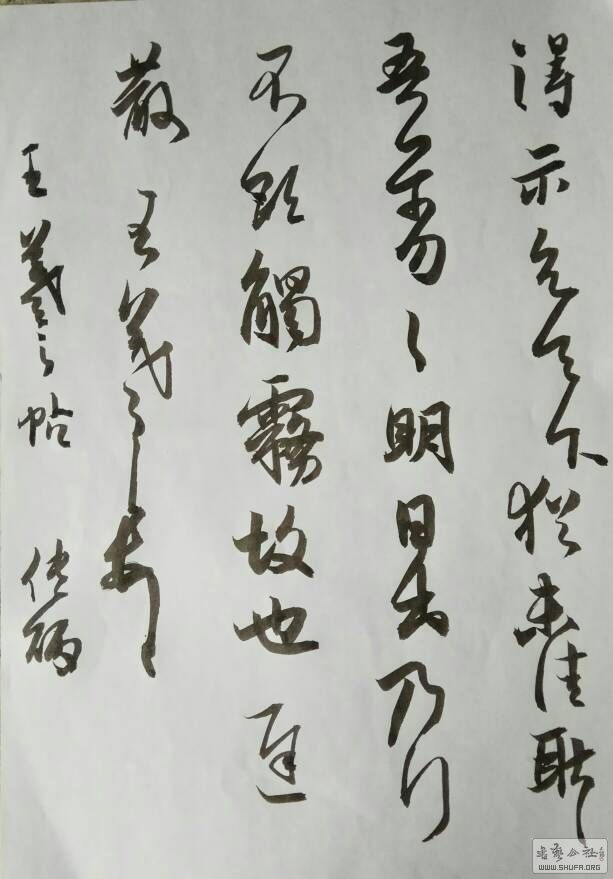 得示知足下猶未佳耿
吾亦劣〻明日出乃行
不欲觸霧故也遲
散王羲之頓首
王羲之帖
书艺公社
WWW.SHUFA.ORG